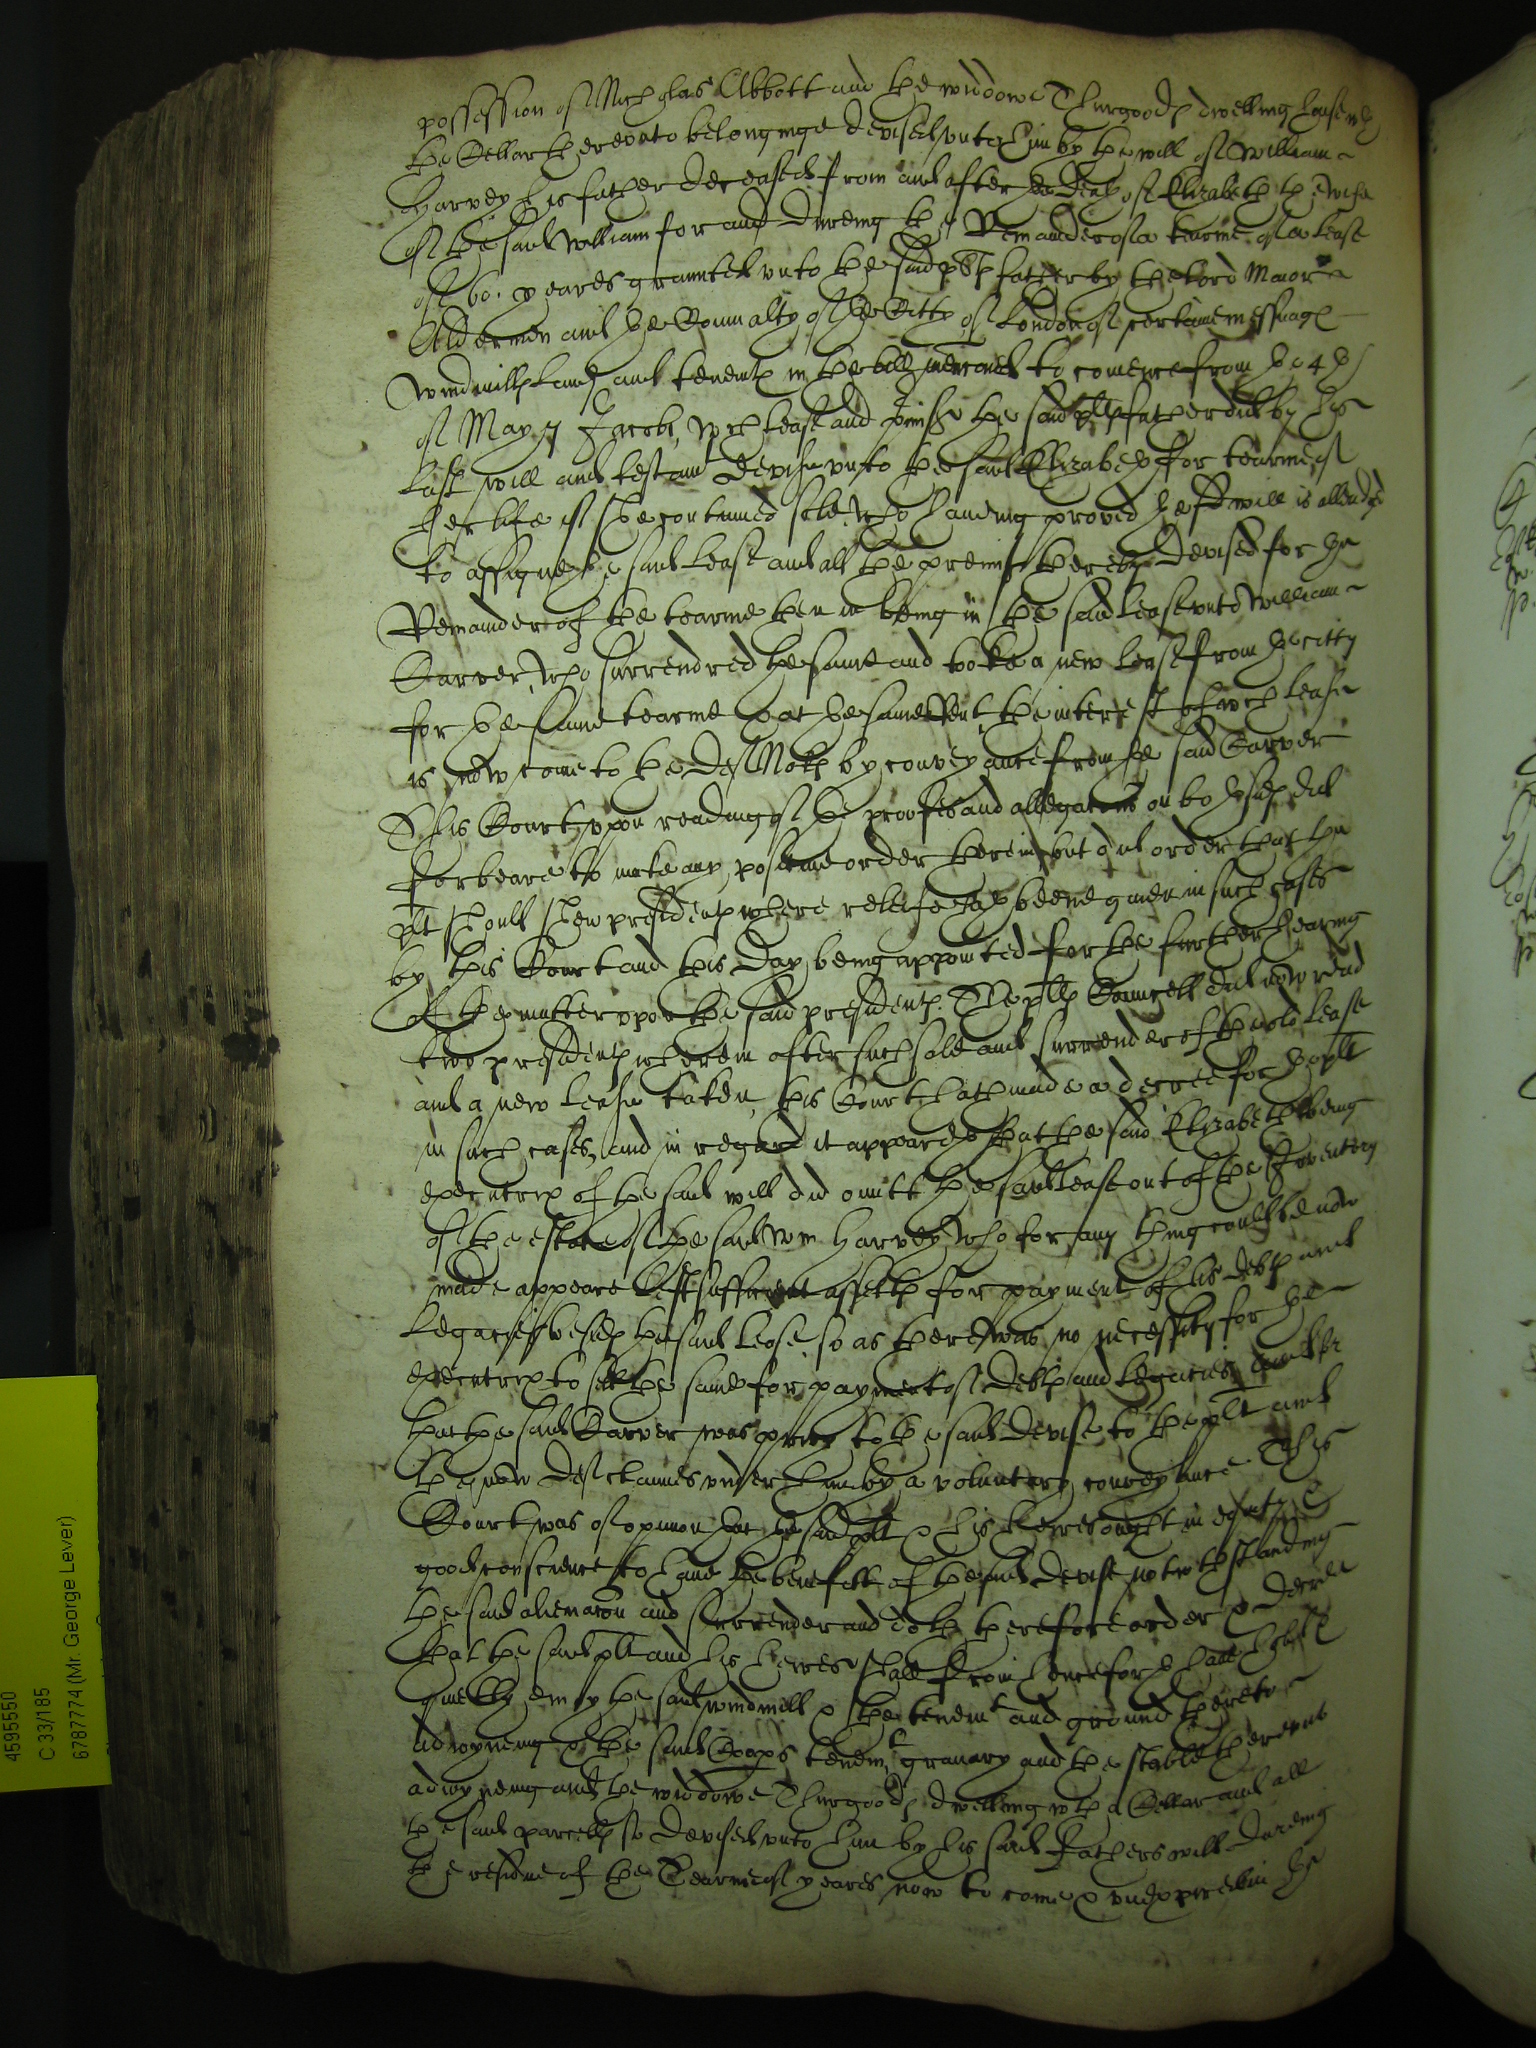 possession of Nicholas Abbott and the widdowe Thurgoods dwelling house wth
the Cellar thereunto belonginge devised unto him by the will of William
Harvey his father deceased from and after the death of Elizabeth the wife
of the said William for and dureing the Remainder of a tearme of a lease
of 60. yeares graunted unto the said plts father by the Lord Maior
Aldermen and the Comunalty of the Citty of London of certaine messuages
windmills lands and tenemts in the bill menconed to comence from the 4th
of May 7 Jacobi, wch lease and premisses the said plts father did by his
last will and testamt devise unto the said Elizabeth for tearme of
her life if she continued sole, who haveing proved the sd will is alleadged
to assigne the said lease and all the premisses thereby devised for the
Remainder of the tearme then in being in the said lease unto William
Carver, who surrendred the same and tooke a new lease from the citty
for the same tearme & at the same Rent, the interest of wch lease
is now come to the Deft Mott by conveyance from the said Carver
This Court upon reading of the proofes and allegacons on both sides did
forbeare to make any positive order therein but did order that the
plt should shew presidents where releife hath beene given in such cases
by this Court and this day being appointed for the further hearing
of the matter upon the said presidents. The plts Councell did now read
two presidents wherein after such sale and surrender of the old lease
and a new lease taken, this Court hath made a decree for the plt
in such cases, and in regard it appeareth that the said Elizabeth being
executrix of the said will did omitt the said lease out of the Inventory
of the estate of the said Wm Harvey, who for any thing could be now
made appeare left sufficient assetts for payment of his debts and
legacies besides the said lease, so as there was no necessity for the
executrix to sell the same for payment of debts and legacies, and for
that the said Carver was privy to the said devise to the plt and
the now Deft claimes under him by a voluntary conveyance This
Court was of opinion that the said plt & his heires ought in equity &
good conscience to have the benefitt of the said devise notwthstanding
the said alienacon and surrender and doth therefore order & decree
that the said plt and his heires shall from henceforth have hold &
quietly enioy the said windmill & the tenemt and ground thereto
adioyneing & the said tenemt granary and the stable thereunto
adioyneing and the widdowe Thurgoods dwelling wth a Cellar and all
the said parcells so devised unto him by his said fathers will dureing
the residue of the Tearme of yeares now to come & unexpired in the
4595550
C 33/185
6787774 (Mr. George Lever)